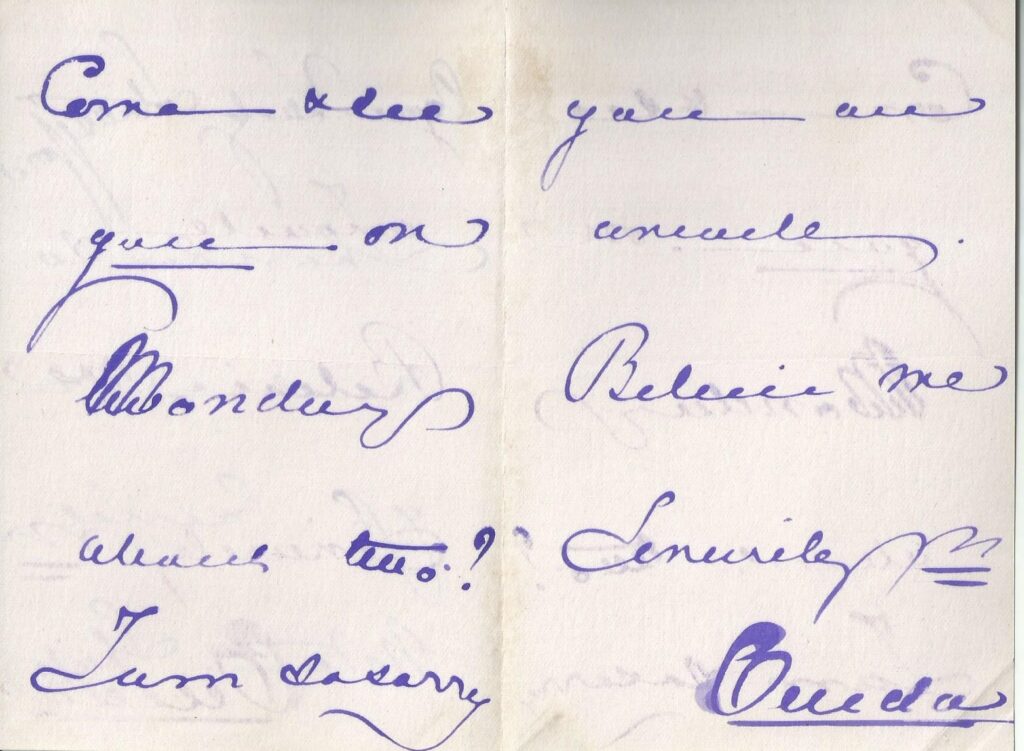 Come & see
you on
Monday
about two?
I am so sorry
you are
unwell.
Believe me
Sincerely yrs
Ouida